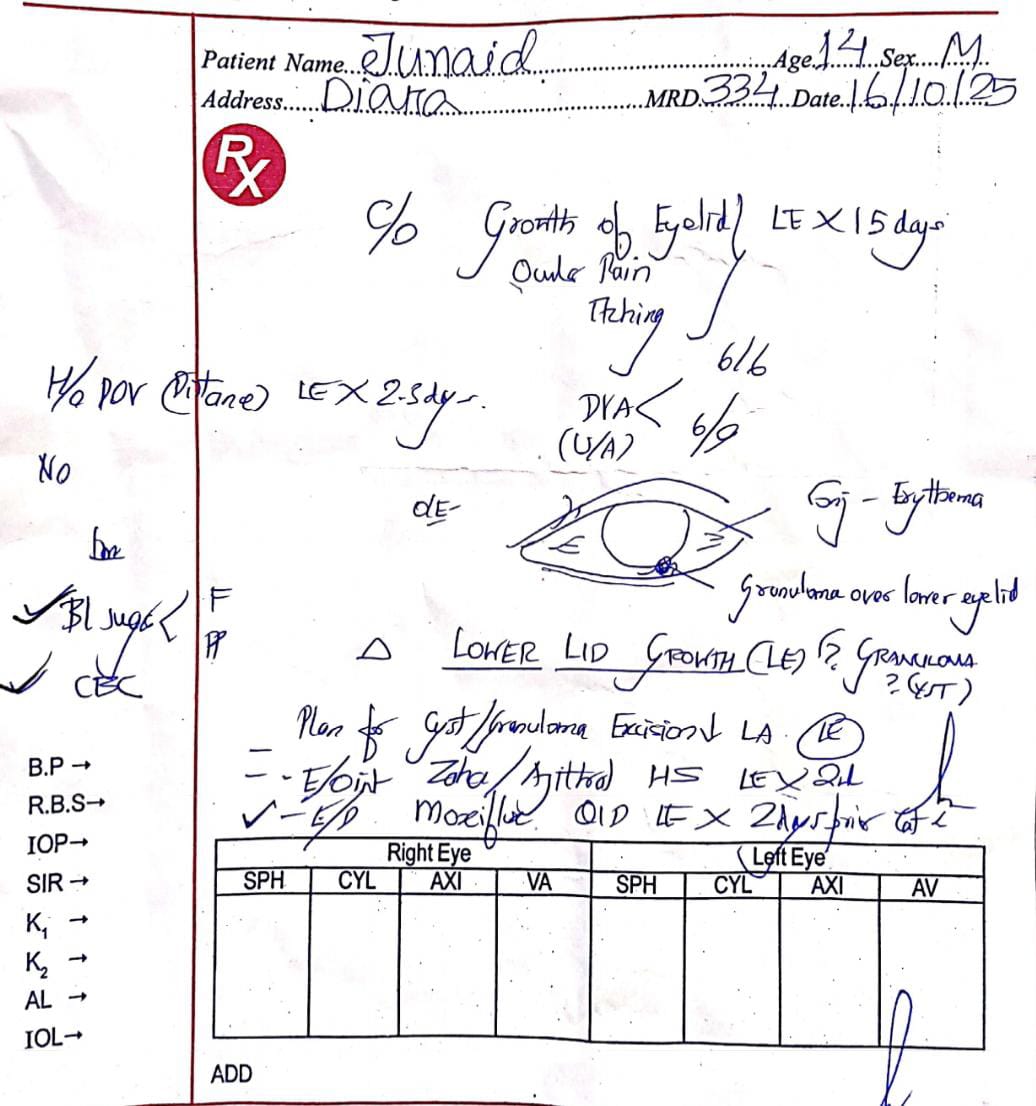 Patient Name... Junaid ... Age 14 Sex M
Address..... Diara ... MRD. 334 Date. 16/10/25
Rx
C/o Growth of Eyelid LE X 15 days
Ocular Pain
Itching
6/6
H/o DOV (Distance) LE X 2-3 dys.
DVA <
(U/A) 6/9
No
O/E-
Conj - Erythema
Granuloma over lower eyelid
Bl sugar < F
PP
CBC
Δ LOWER LID GROWTH (LE) (? GRANULOMA
? CYST)
- Plan for Cyst/Granuloma Excision ↓ LA (LE)
- - E/Oint HS LE X
✓ - E/D Moxiflue QID LE X 2 days prior
B.P →
R.B.S→
IOP→
SIR →
K1 →
K2 →
AL →
IOL→
Right Eye Left Eye
SPH CYL AXI VA SPH CYL AXI AV
ADD